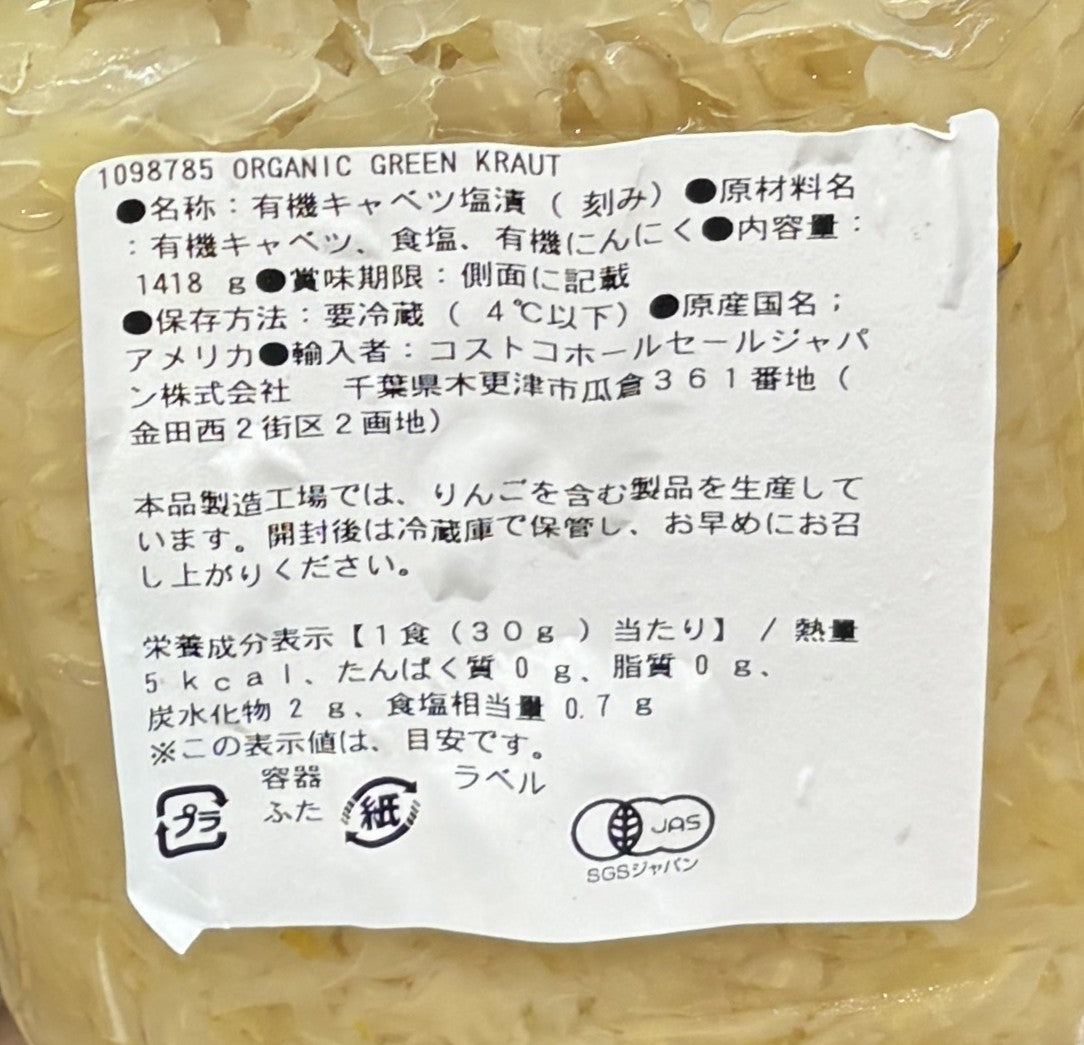 1098785 ORGANIC GREEN KRAUT
●名称：有機キャベツ塩漬（刻み）●原材料名
：有機キャベツ、食塩、有機にんにく●内容量：
1418 g●賞味期限：側面に記載
●保存方法：要冷蔵（４℃以下）●原産国名；
アメリカ●輸入者：コストコホールセールジャパ
ン株式会社　千葉県木更津市瓜倉３６１番地（
金田西２街区２画地）
本品製造工場では、りんごを含む製品を生産して
います。開封後は冷蔵庫で保管し、お早めにお召
し上がりください。
栄養成分表示【１食（３０ｇ）当たり】/ 熱量
5 ｋｃａｌ、たんぱく質 0 ｇ、脂質 0 ｇ、
炭水化物 2 ｇ、食塩相当量 0.7 ｇ
※この表示値は、目安です。
容器 ラベル
プラ ふた 紙
JAS
SGSジャパン